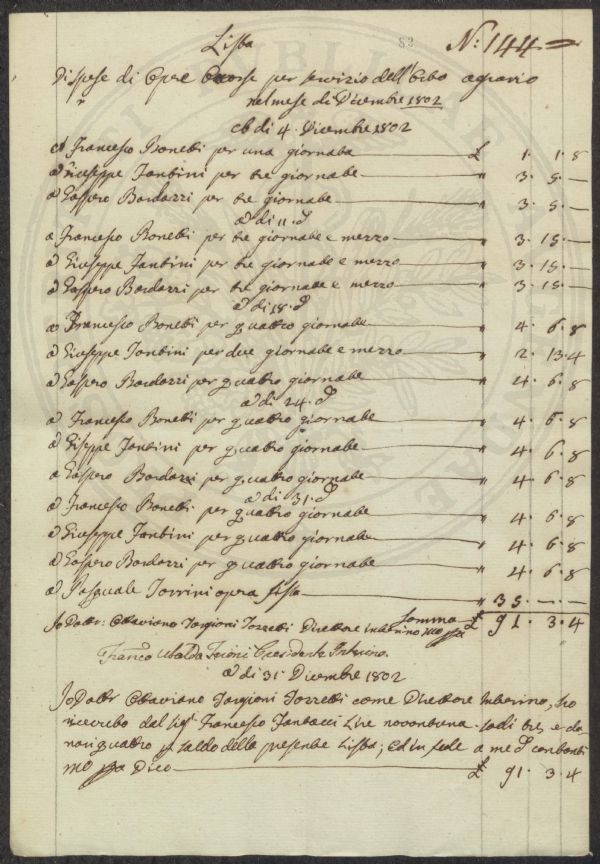 82 N: 144
Lista
Di Spese di Opre Occorse per servizio dell'Orto agrario
nel mese di Dicembre 1802
A di 4. Dicembre 1802
A Francesco Bonetti per una giornata £ 1. 1. 8
A Giuseppe Fantini per tre giornate " 3. 5. —
A Gaspero Bardazzi per tre giornate " 3. 5. —
A di 11. d
a Francesco Bonetti per tre giornate e mezzo " 3. 15. —
A Giuseppe Fantini per tre giornate e mezzo " 3. 15. —
A Gaspero Bardazzi per tre giornate e mezzo " 3. 15. —
A di 18. d
a Francesco Bonetti per quattro giornate " 4. 6. 8
A Giuseppe Fantini per due giornate e mezzo " 2. 13. 4
A Gaspero Bardazzi per quattro giornate " 4. 6. 8
A di 24. d
A Francesco Bonetti per quattro giornate " 4. 6. 8
A Giseppe Fantini per quattro giornate " 4. 6. 8
a Gaspero Bardazzi per quattro giornate " 4. 6. 8
A di 31. d
A Francesco Bonetti per quattro giornate " 4. 6. 8
A Giuseppe Fantini per quattro giornate " 4. 6. 8
A Gaspero Bardazzi per quattro giornate " 4. 6. 8
A Pasquale Torrini opera fissa " 35. — —
Somma £ 91. 3. 4
Io Dottr: Ottaviano Targioni Tozzetti Direttore interino mo ppa
Franco Ubaldo Feroni Presidente Interino
A di 31 Dicembre 1802
Io Dottr Ottaviano Targioni Tozzetti come Direttore Interino, ho
ricevuto dal Sigr Francesco Fantacci Lire novantuna soldi tre, e da
nari quattro p saldo della presente Lista; ed in fede a me d contanti
mo ppa Dico £ 91. 3. 4